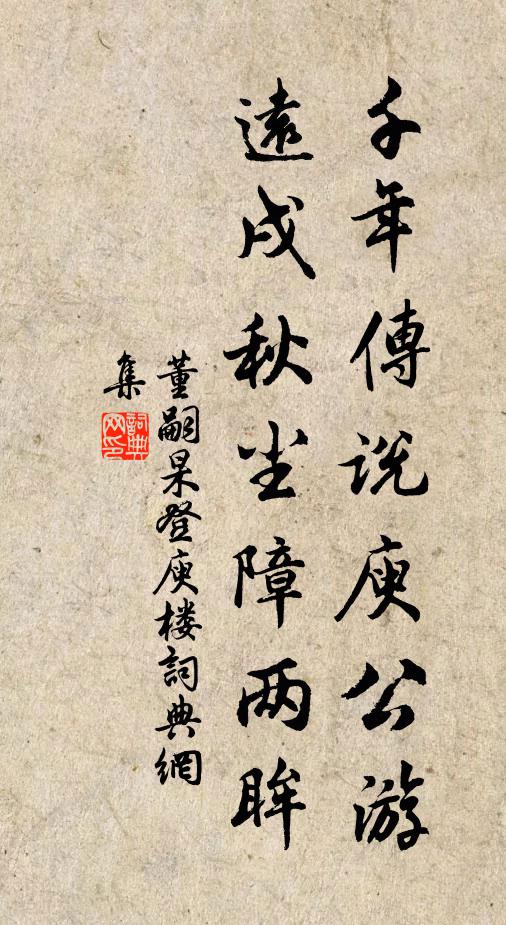 千年傳説庾公游
遠戍秋尘障两眸
董嗣杲登庾楼詞典網
集
詞典网印